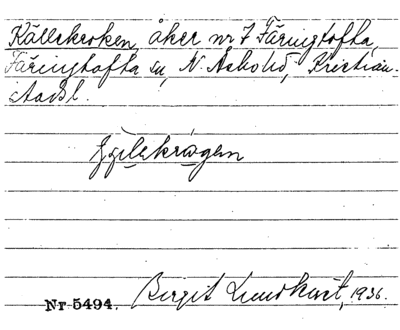 Källekroken, åker nr 7 Färingtofta,
Färingtofta sn, N. Åsbo hd, Kristian-
stads l.
Nr 5494. Birgit Lundkvist, 1936.